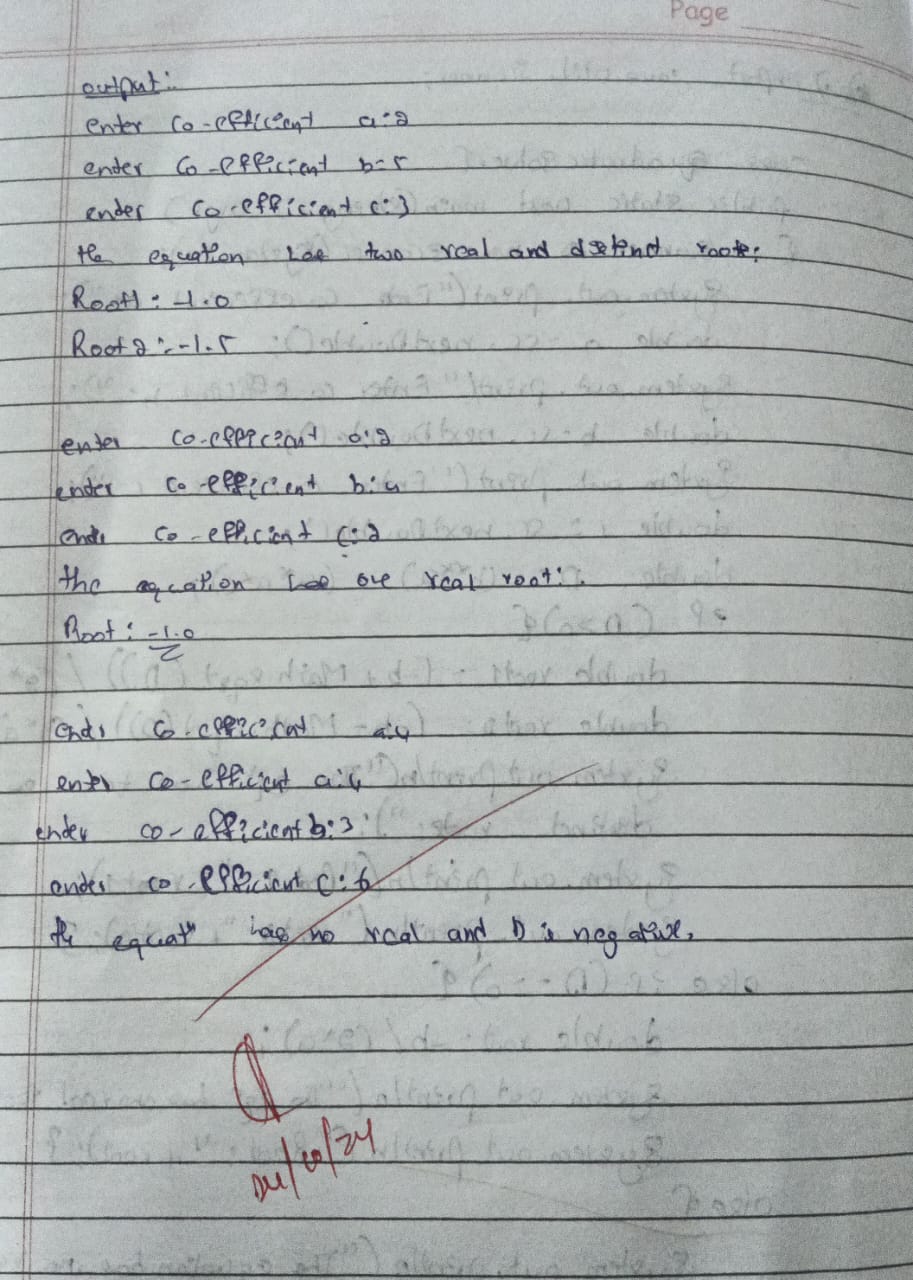 Page
output:
enter co-efficient a:2
enter co-efficient b=5
ender co-efficient c:3
the equation has two real and dstind roots:
Root1: -1.0
Root2: -1.5
enter co-efficient a:2
ender co-efficient b:4
ende co-efficient c:2
the equation has one real root:
Root: -1.0
co-efficient a:4
enter co-efficient a:4
ender co-efficient b:3
ender co-efficient c:6
the equatn has no real and D is negative.
/10/24